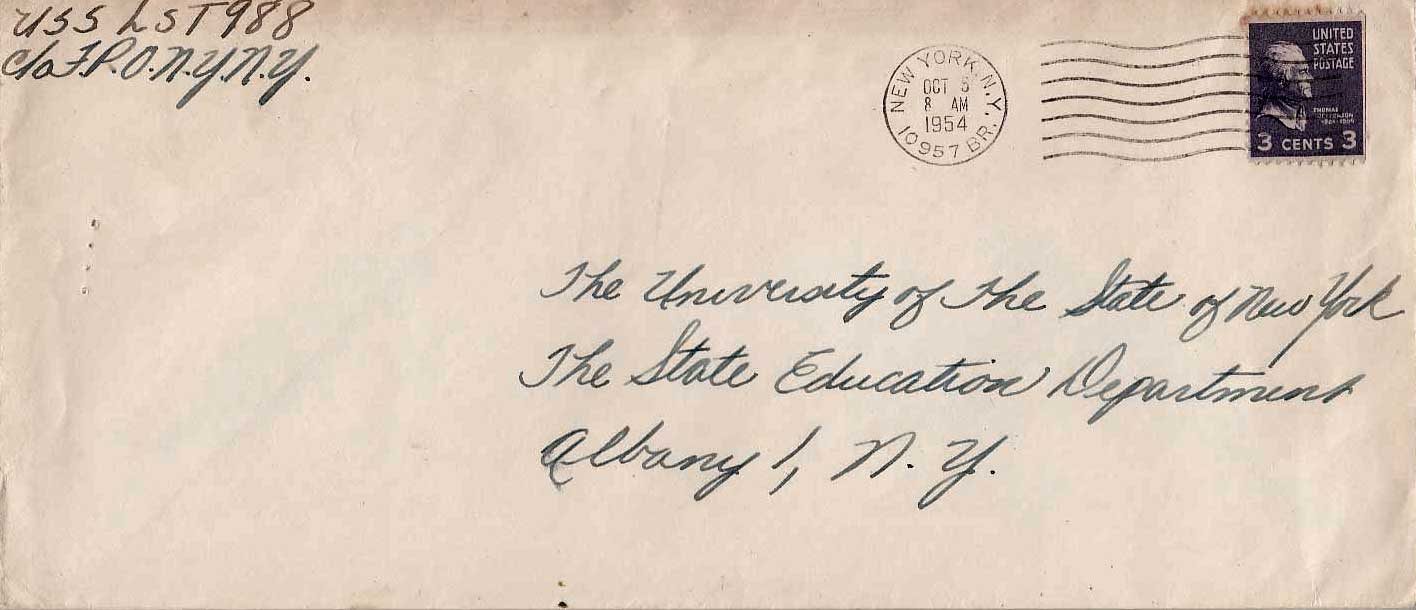 USS LST 988
c/o F.P.O. N.Y. N.Y.
NEW YORK, N.Y.
OCT 5
8 AM
1954
10957 BR.
UNITED
STATES
POSTAGE
THOMAS
JEFFERSON
3 CENTS 3
The University of The State of New York
The State Education Department
Albany 1, N. Y.